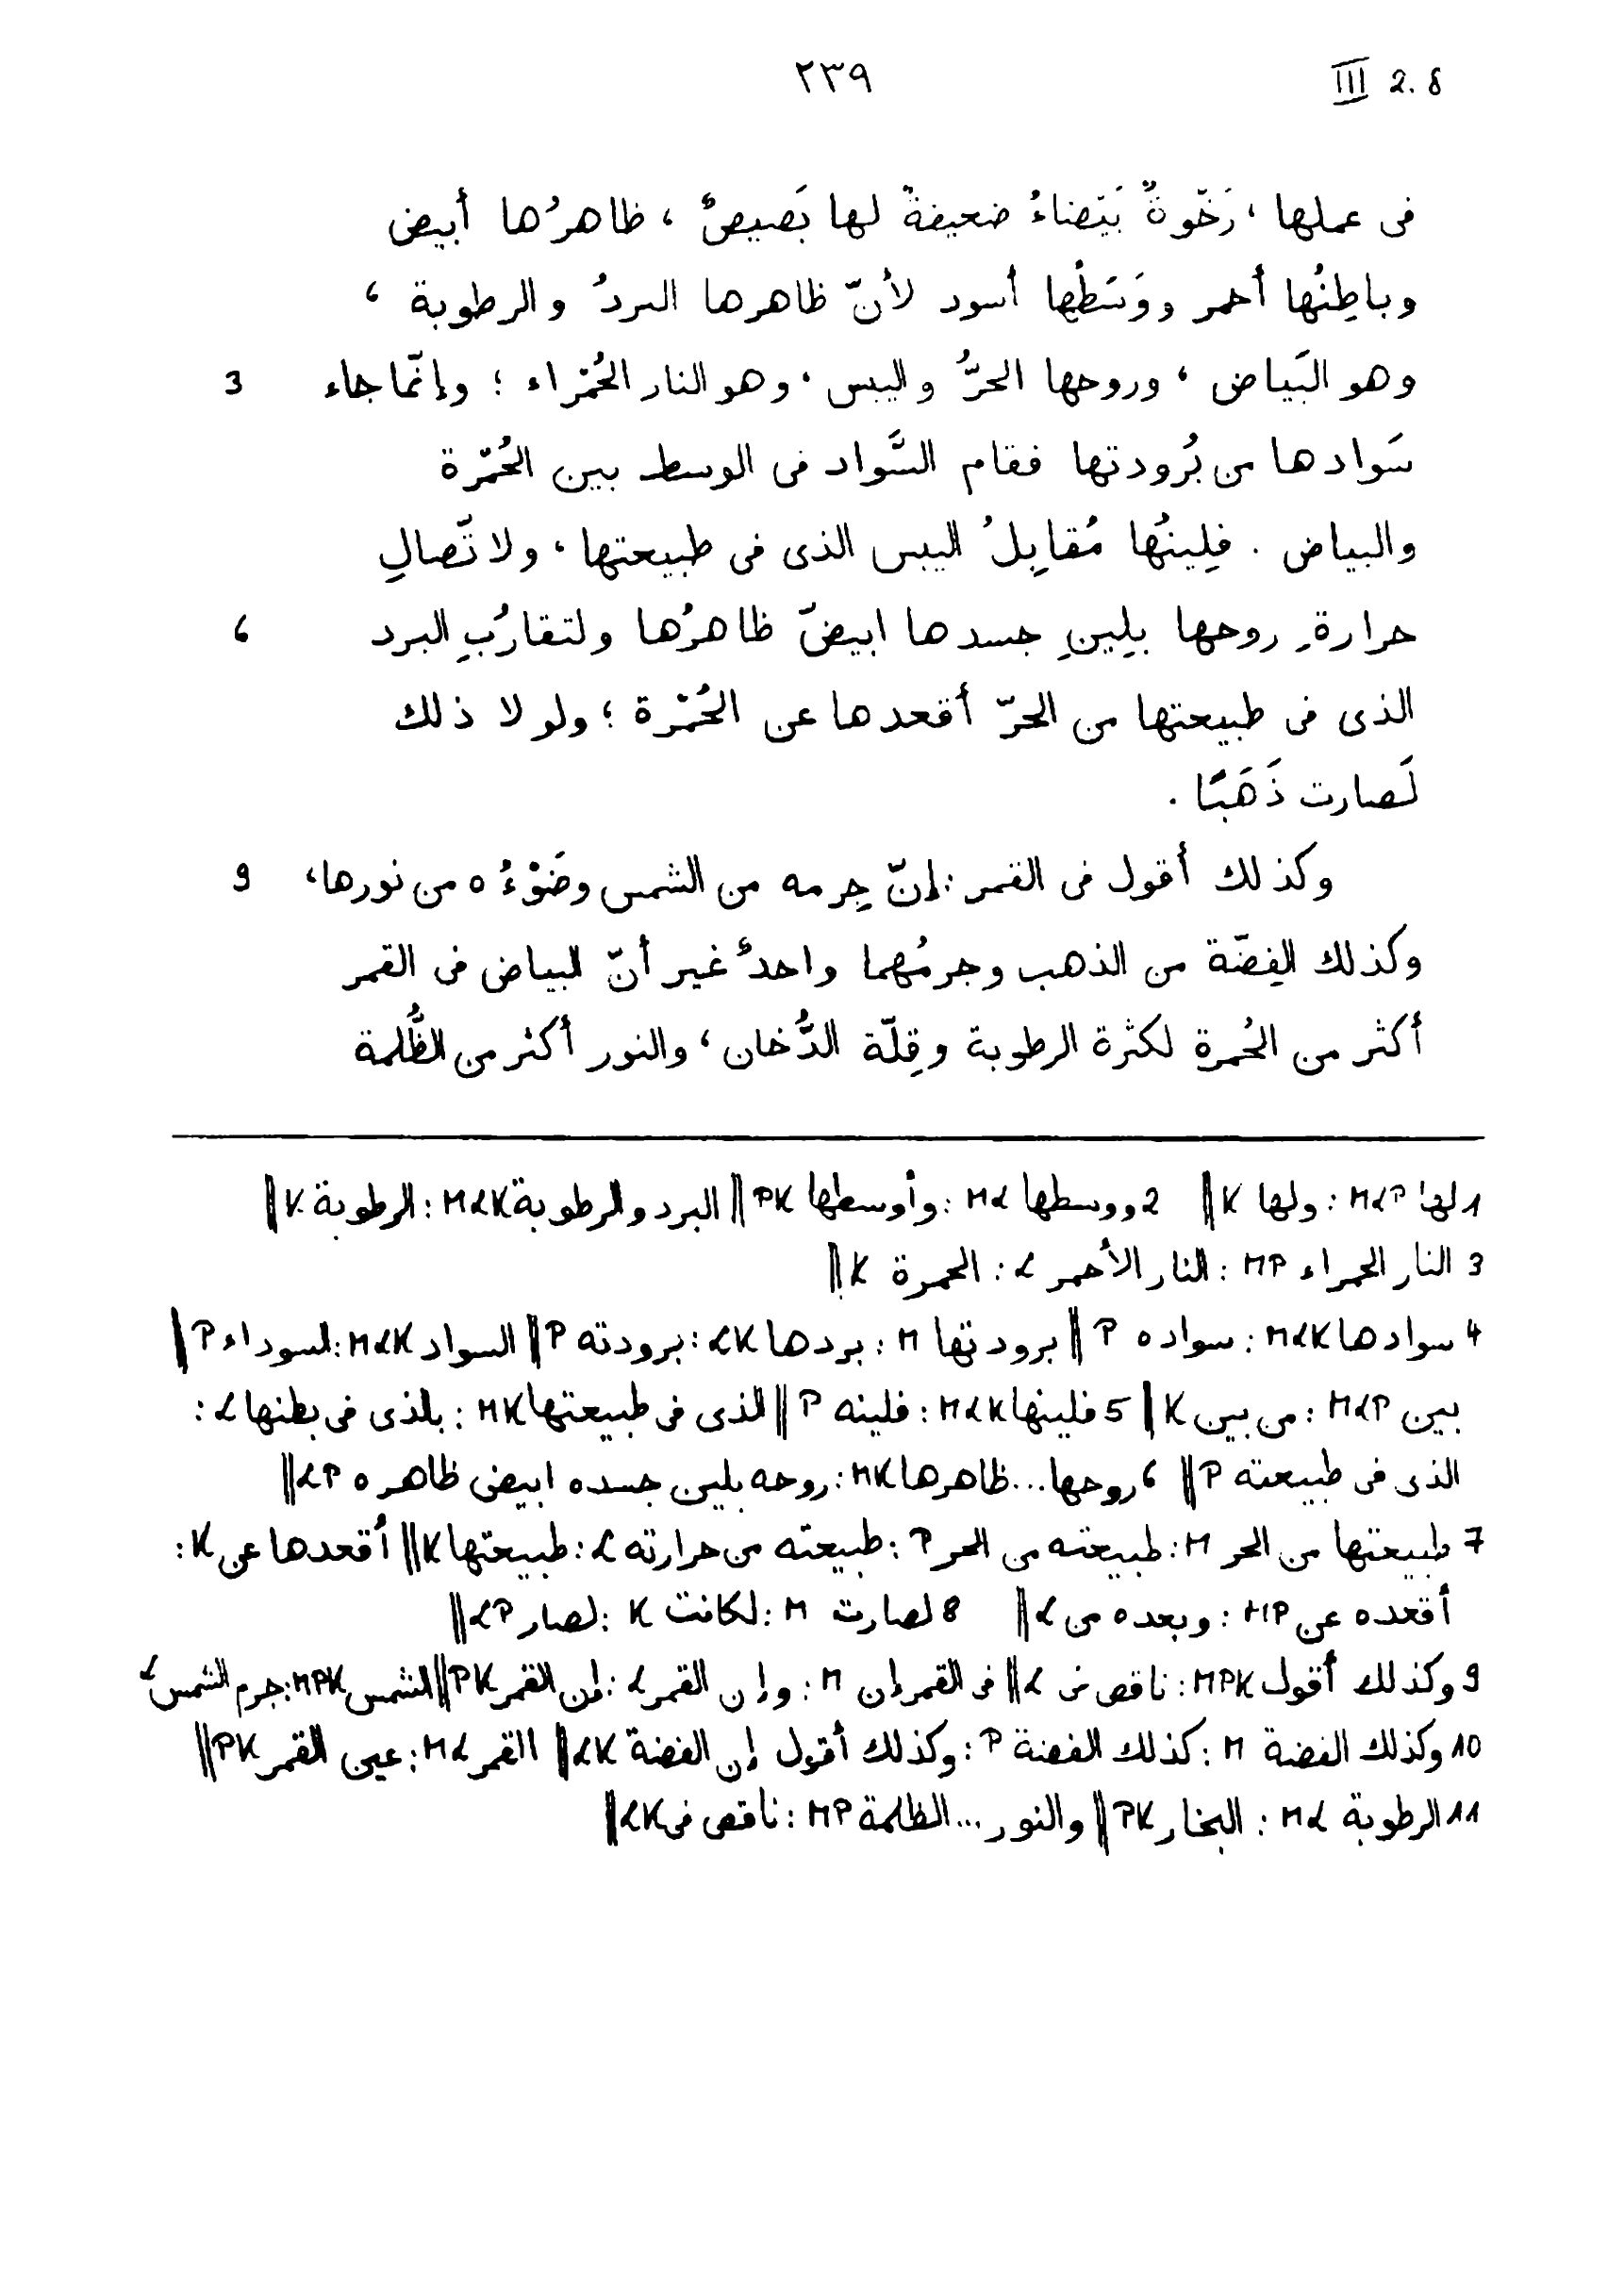 ٢٣٩ III 2.8
فى عملها ، رَخْوةٌ بَيْضاءُ ضعيفةٌ لها بَصيصٌ ، ظاهرُها أبيض
وباطِنُها أحمر ووَسَطُها أسود لأنّ ظاهرها البردُ والرطوبة ،
وهو البَياض ، وروحها الحرُّ واليبس ، وهو النار الحُمْراء ؛ وإنّما جاء 3
سَوادها من بُرودتها فقام السَّواد فى الوسط بين الحُمْرة
والبياض . فلِينُها مُقابِلُ اليبس الذى فى طبيعتها ، ولاتّصالِ
حرارةِ روحها بلِينِ جسدها ابيضّ ظاهرُها ولتقارُبِ البرد 6
الذى فى طبيعتها من الحرّ أقعدها عن الحُمْرة ؛ ولو لا ذلك
لَصارت ذَهَبًا .
وكذلك أقول فى القمر : إنّ جِرمه من الشمس وضَوْءُه من نورها ، 9
وكذلك الفِضّة من الذهب وجرمُهما واحدٌ غير أنّ البياض فى القمر
أكثر من الحُمرة لكثرة الرطوبة وقِلّة الدُّخان ، والنور أكثر من الظُّلمة
1 لها MLP : ولها K ‖ 2 ووسطها ML : وأوسطها PK ‖ البرد والرطوبة MLK : الرطوبة K ‖
3 النار الحمراء MP : النار الأحمر L : الحمرة K ‖
4 سوادها MLK : سواده P ‖ برودتها M : بردها LK : برودته P ‖ السواد MLK : لسوداء P ‖
بين MLP : من بين K ‖ 5 فلينها MLK : فلينه P ‖ الذى فى طبيعتها MK : بالذى فى بطنها L :
الذى فى طبيعته P ‖ 6 روحها ... ظاهرها MK : روحه بلين جسده ابيض ظاهره LP ‖
7 طبيعتها من الحر M : طبيعته من الحر P : طبيعته من حرارته L : طبيعتها K ‖ أقعدها عن K :
أقعده عن MP : وبعده من L ‖ 8 لصارت M : لكانت K : لصار LP ‖
9 وكذلك أقول MPK : ناقص فى L ‖ فى القمر إن M : وإن القمر L : إن القمر PK ‖ الشمس MPK : جرم الشمس L
10 وكذلك الفضة M : كذلك الفضة P : وكذلك أقول إن الفضة LK ‖ القمر ML : عين القمر PK ‖
11 الرطوبة ML : البخار PK ‖ والنور ... الظلمة MP : ناقص فى LK ‖